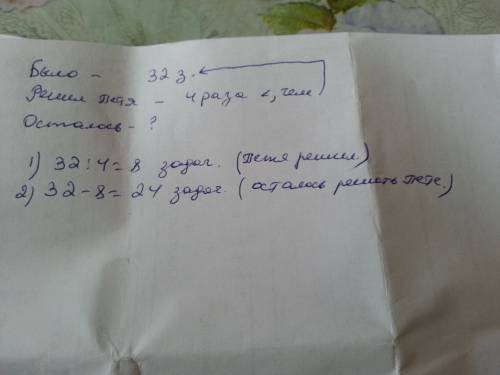 Было - 32 з.
Решил Петя - 4 раза <, чем
Осталось - ?
1) 32:4=8 задач. (Петя решил.)
2) 32-8=24 задач. (осталось решать Пете.)